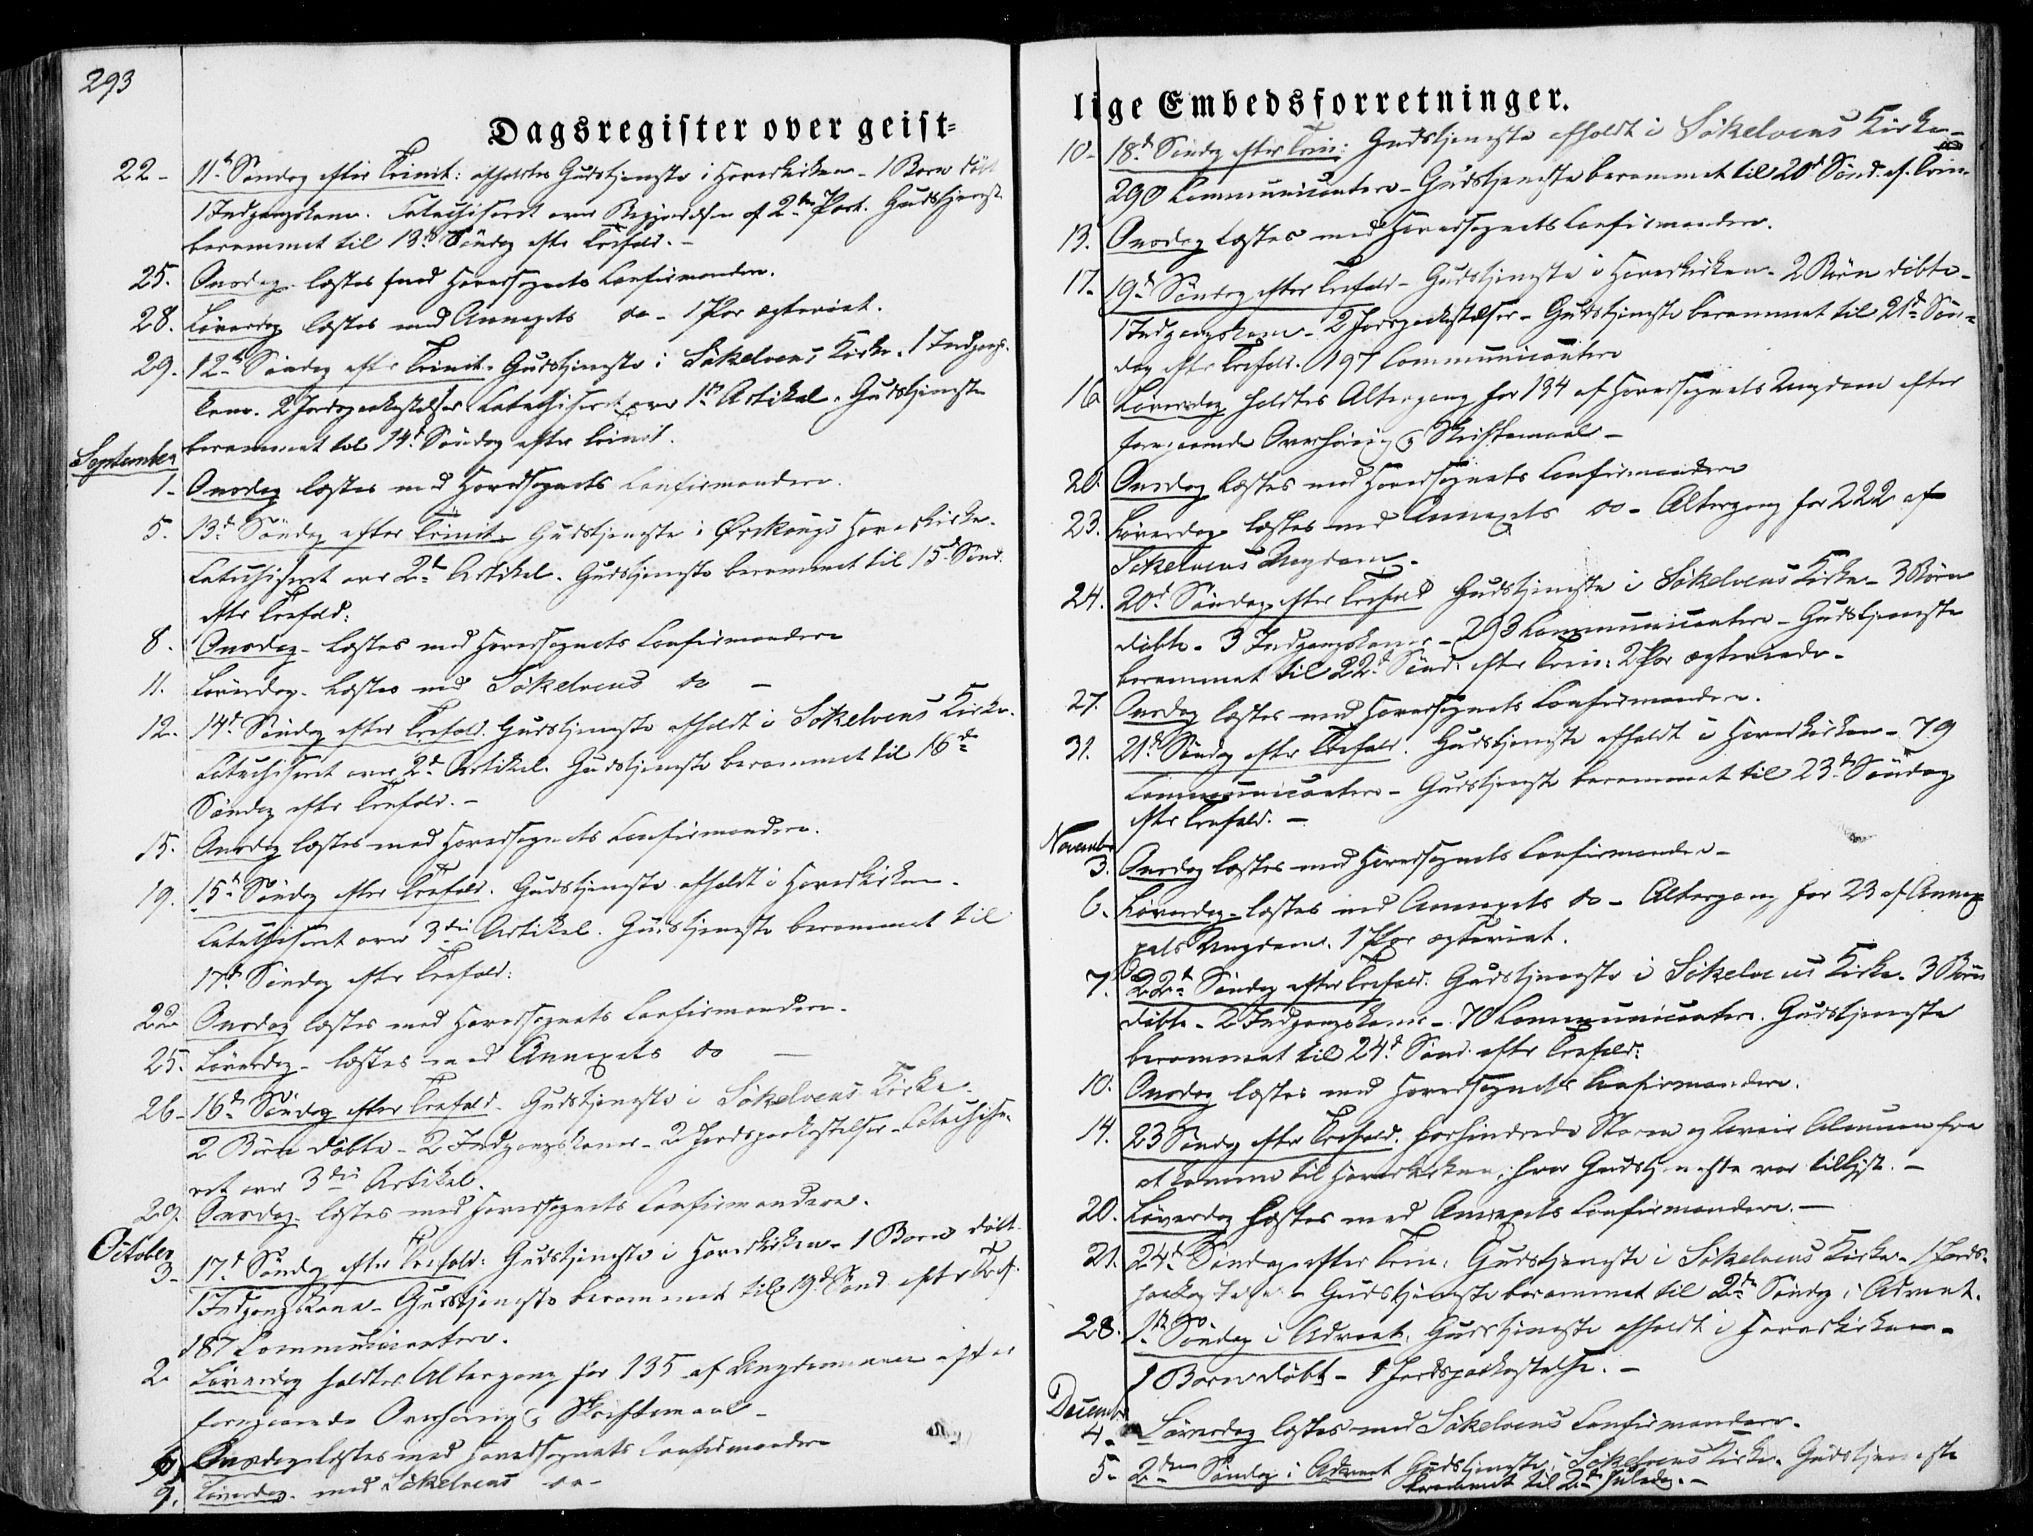 293
Dagsregister over geist-
22 - 11te Søndag efter Trinit: afholdtes Gudstjeneste i Hovedkirken - 1 Barn døbt
1 Indgangskone. Catechiseret over Begyndelsen af 2den Part. Gudstjeneste
berammet til 13de Søndag efter Trefold. -
25. Onsdag læstes med Hovedsognets Confirmander.
28. Løverdag læstes med Annexets do - 1 Par ægteviet.
29. 12te Søndag efter Trinit. Gudstjeneste i Søkelvens Kirke. 1 Indgangs-
kone. 2 Jordpaakastelser. Catechiseret over 1ste Artikel. Gudstjeneste
berammet til 14de Søndag efter Trinit.
September
1 - Onsdag læstes med Hovedsognets Confirmander.
5. 13de Søndag efter Trinit. Gudstjeneste i Ørskougs Hovedkirke.
Catechiseret over 2den Artikel. Gudstjeneste berammet til 15de Sønd.
efter Trefold:
8. Onsdag - læstes med Hovedsognets Confirmander
11. Løverdag - læstes med Søkelvens do -
12. 14de Søndag efter Trefold. Gudstjeneste afholdt i Søkelvens Kirke.
Catechiseret over 2d Artikel. Gudstjeneste berammet til 16de
Søndag efter Trefold. -
15. Onsdag læstes med Hovedsognets Confirmander.
19. 15de Søndag efter Trefold. Gudstjeneste afholdt i Hovedkirken.
Catechiseret over 3die Artikel. Gudstjeneste berammet til
17de Søndag efter Trefold:
22. Onsdag læstes med Hovedsognets Confirmander.
25. Løverdag - læstes med Annexets do -
26 - 16de Søndag efter Trefold - Gudstjeneste i Søkelvens Kirke.
2 Børn døbte - 2 Indgangskoner - 2 Jordpaakastelser - Catechise-
ret over 3die Artikel.
29. Onsdag læstes med Hovedsognets Confirmander.
October
3 - 17de Søndag efter Trefold: Gudstjeneste i Hovedkirken - 1 Barn døbt
1 Indgangskone - Gudstjeneste berammet til 19de Sønd efter Tref.
187 Communicantere.
2. Løverdag holdtes Altergang for 135 af Ungdommen efter
foregaaende Overhøring og Skriftemaal -
6. Onsdag læstes med Hovedsognets Confirmander
9. Løverdag - med Søkelvens do -
lige Embedsforretninger.
10 - 18de Søndag efter Trin: Gudstjeneste afholdt i Søkelvens Kirke -
290 Communicantere - Gudstjeneste berammet til 20de Sønd. ef. Trin.
13. Onsdag læstes med Hovedsognets Confirmander.
17. 19de Søndag efter Trefold - Gudstjeneste i Hovedkirken. 2 Børn døbte -
1 Indgangskone - 2 Jordpaakastelser - Gudstjeneste berammet til 21de Søn-
dag efter Trefold. 197 Communicantere
16. Løverdag holdtes Altergang for 134 af Hovedsognets Ungdom efter
foregaaende Overhøring og Skriftemaal -
20. Onsdag læstes med Hovedsognets Confirmander
23. Løverdag læstes med Annexets do - Altergang for 222 af
Søkelvens Ungdom.
24. 20de Søndag efter Trefold Gudstjeneste i Søkelvens Kirke - 3 Børn
døbte - 3 Indgangskoner - 293 Communicantere - Gudstjeneste
berammet til 22de Sønd: efter Trin: 2 Par ægteviede -
27. Onsdag læstes med Hovedsognets Confirmander.
31. 21de Søndag efter Trefold. Gudstjeneste afholdt i Hovedkirken - 79
Communicantere - Gudstjeneste berammet til 23de Søndag
efter Trefold. -
November
3. Onsdag læstes med Hovedsognets Confirmander -
6. Løverdag - læstes med Annexets do - Altergang for 23 af Annex-
ets Ungdom. 1 Par ægteviet.
7. 22de Søndag efter Trefold. Gudstjeneste i Søkelvens Kirke. 3 Børn
døbte - 2 Indgangskoner - 70 Communicantere. Gudstjeneste
berammet til 24de Sønd. efter Trefold:
10. Onsdag læstes med Hovedsognets Confirmander.
14. 23 Søndag efter Trefold. forhindrede Storm og Almuen fra
at komme til Hovedkirken, hvor Gudstjeneste var tillyst. -
20. Løverdag læstes med Annexets Confirmander. -
21. 24de Søndag efter Trin. Gudstjeneste i Søkelvens Kirke - 1 Jords-
paakastelse - Gudstjeneste berammet til 2den Søndag i Advent.
28. 1ste Søndag i Advent. Gudstjeneste afholdt i Hovedkirken -
1 Barn døbt - 1 Jordspaakastelse. -
December
4. Løverdag læstes med Søkelvens Confirmander.
5 - 2den Søndag i Advent Gudstjeneste i Søkelvens Kirke. Gudstjeneste
berammet til 2den Juledag. -